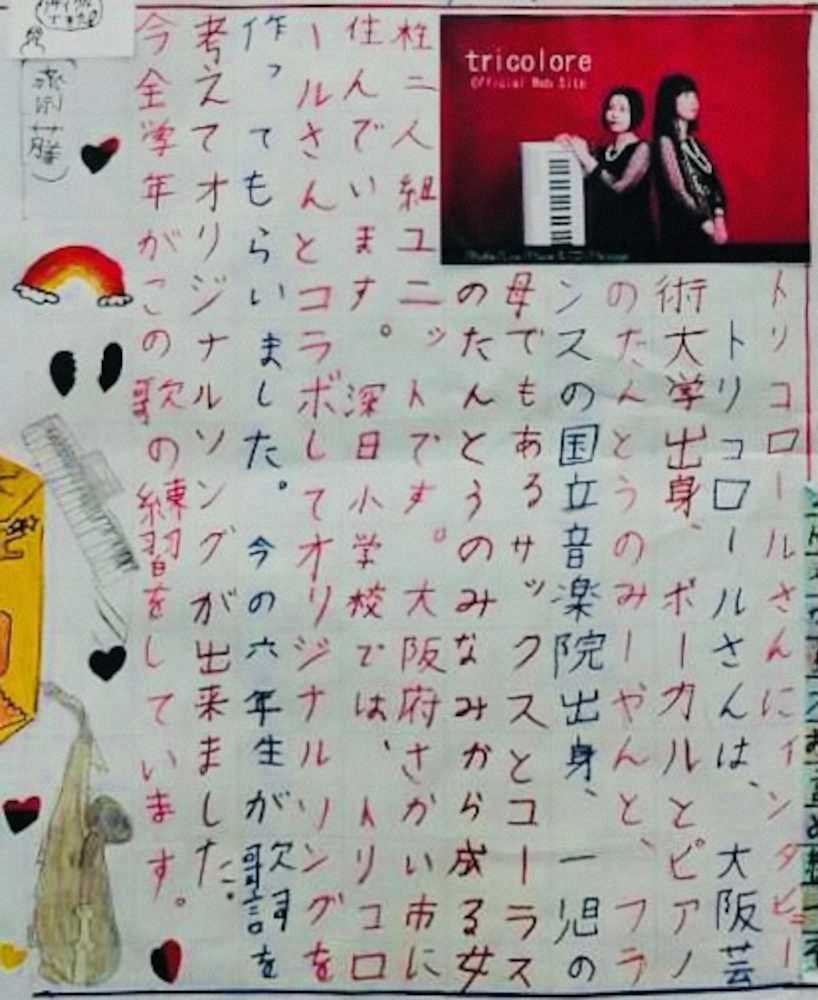 tricolore
Official Web Site
トリコロールさんにインタビュー
トリコロールさんは、大阪芸
術大学出身、ボーカルとピアノ
のたんとうのみーやんと、フラ
ンスの国立音楽院出身、一児の
母でもあるサックスとコーラス
のたんとうのみなみから成る女
性二人組ユニットです。大阪府さかい市に
住んでいます。深日小学校では、トリコロ
ールさんとコラボしてオリジナルソングを
作ってもらいました。今の六年生が歌詞を
考えてオリジナルソングが出来ました。
今全学年がこの歌の練習をしています。